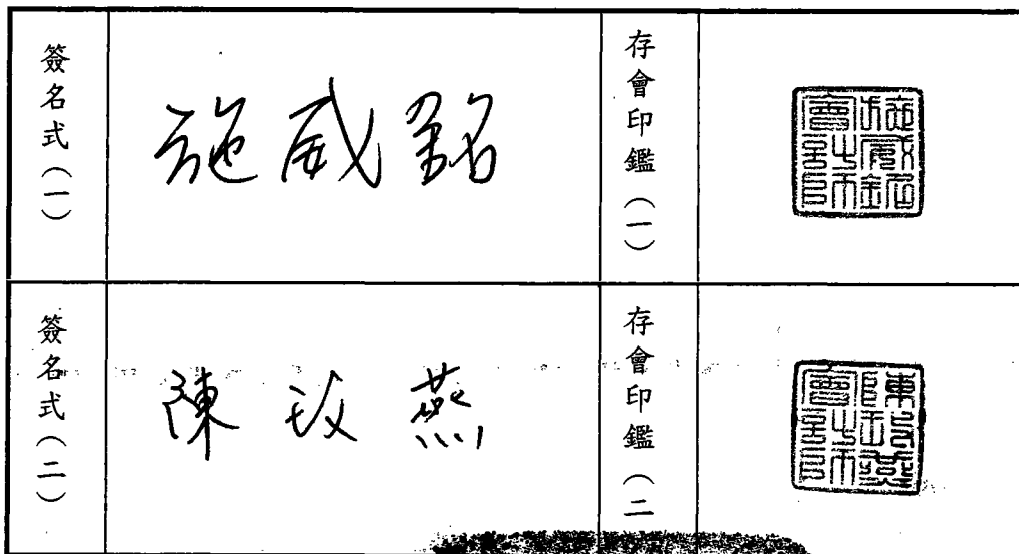 簽名式（一）
施威銘
存會印鑑（一）
簽名式（二）
陳玫燕
存會印鑑（二